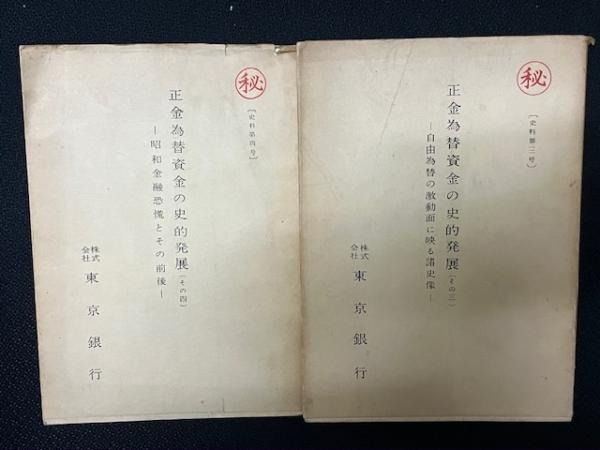 秘
〔史料第三号〕
正金為替資金の史的発展（その三）
―自由為替の激動面に映る諸史像―
株式会社 東京銀行
秘
〔史料第四号〕
正金為替資金の史的発展（その四）
―昭和金融恐慌とその前後―
株式会社 東京銀行